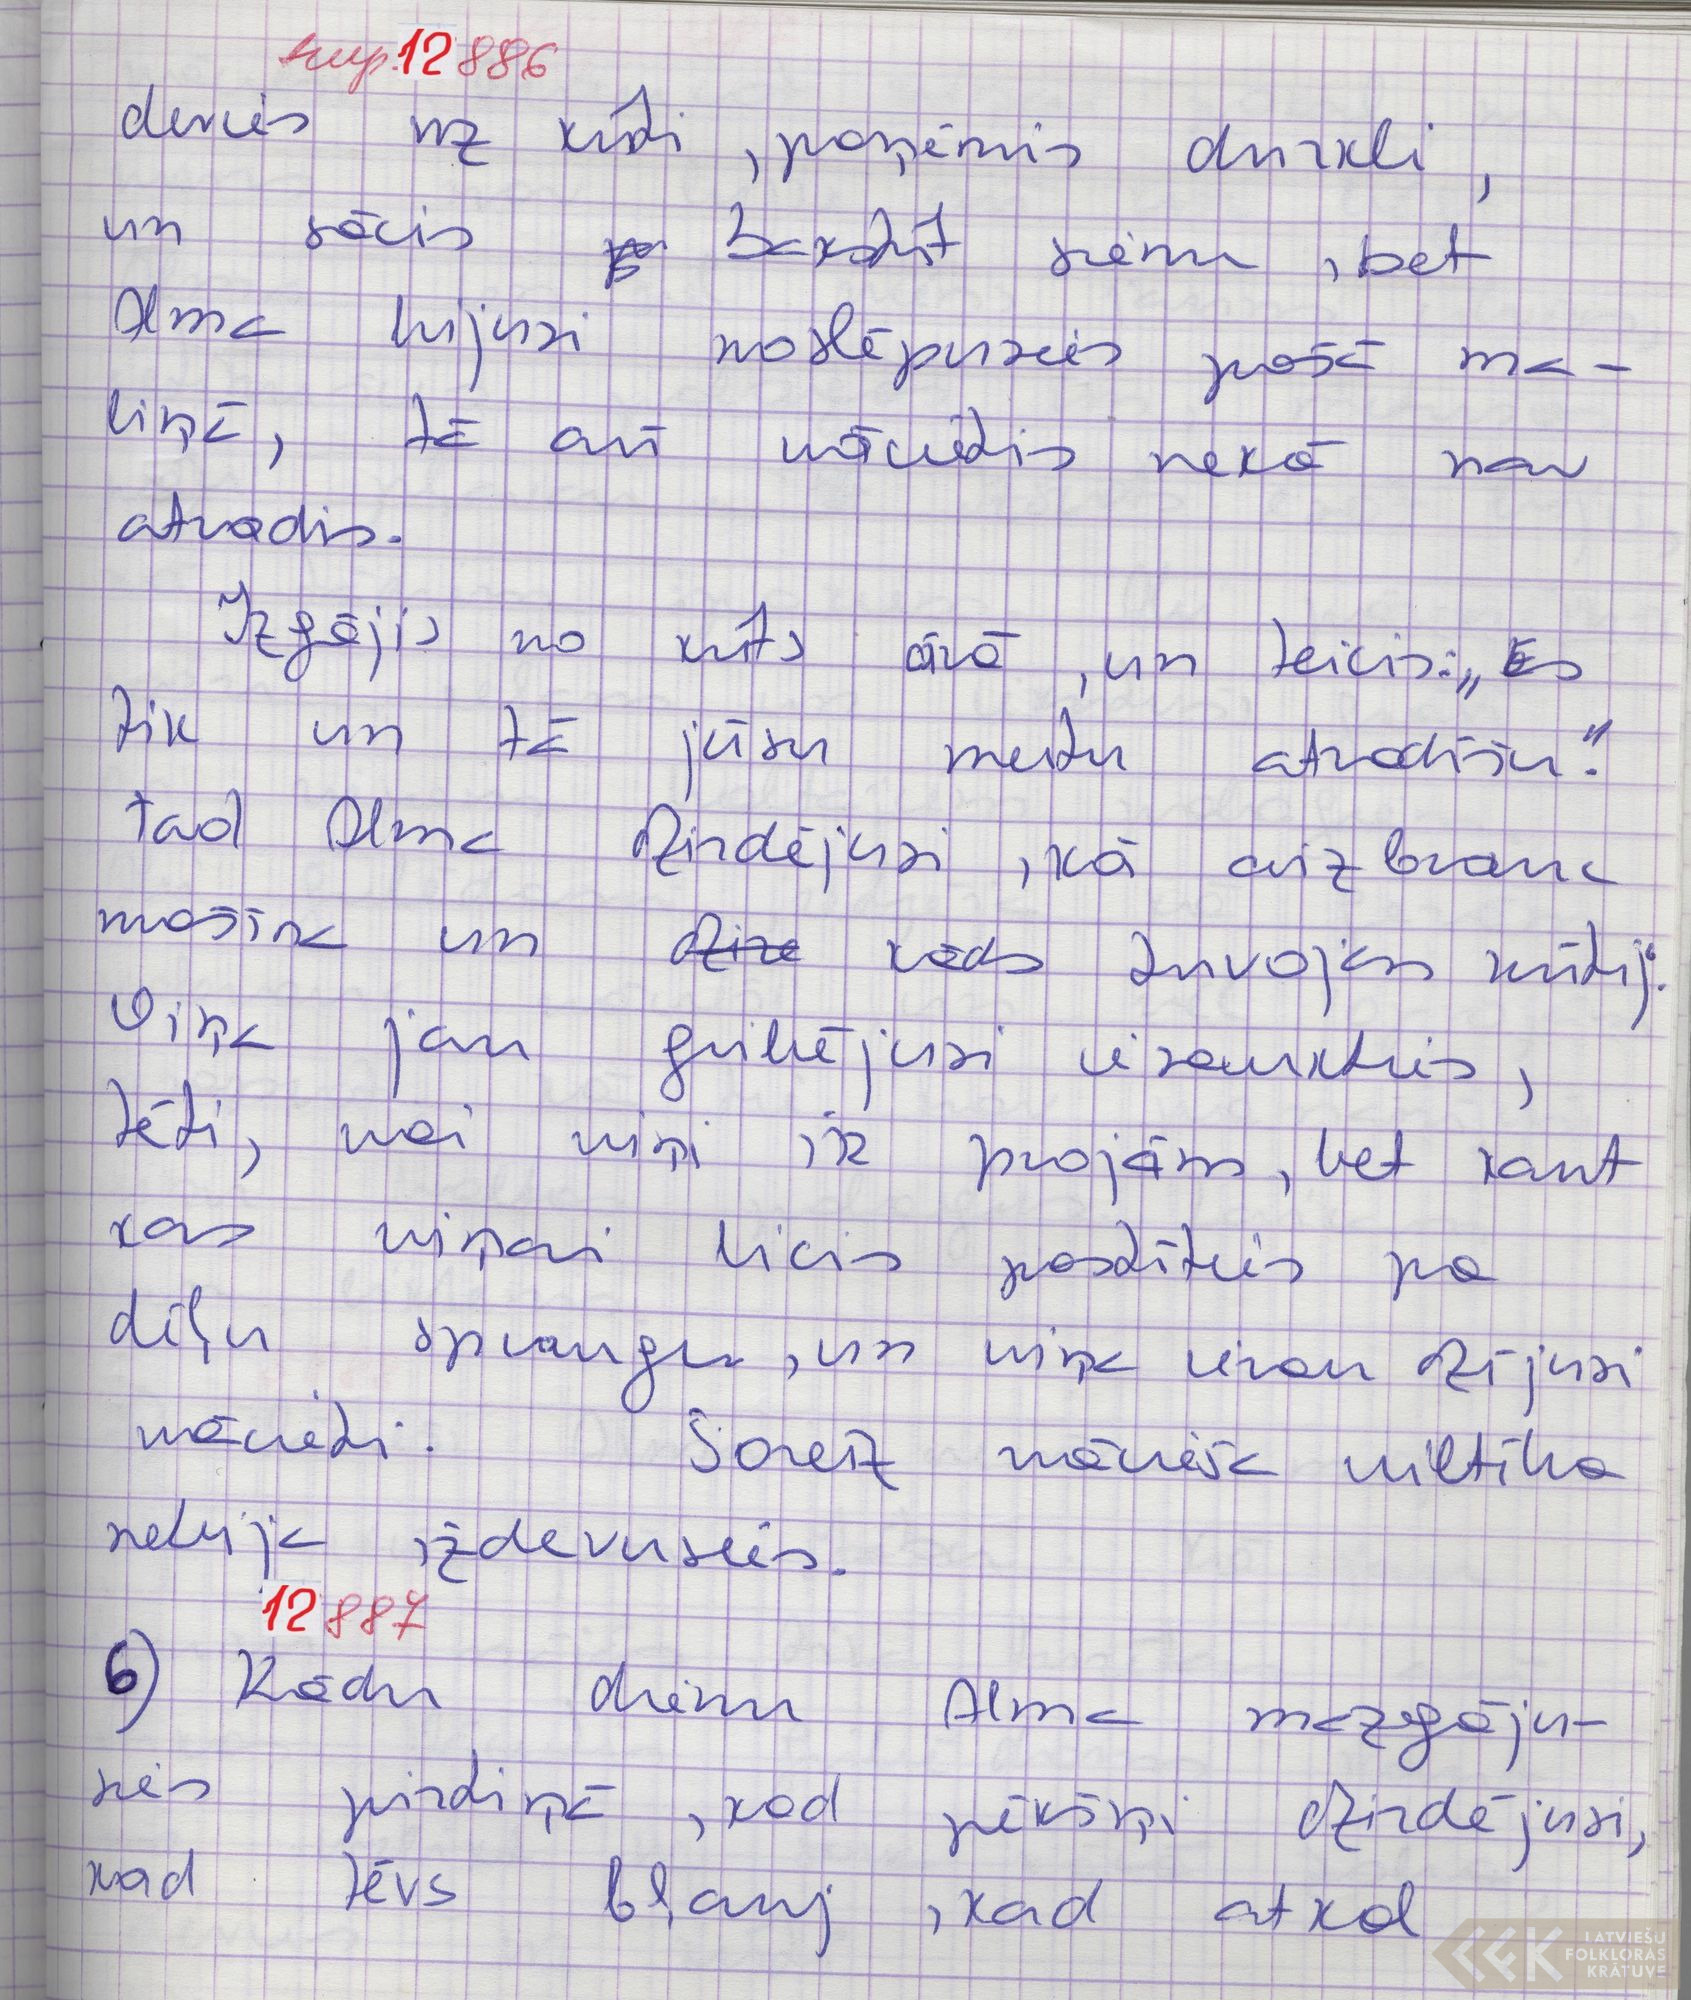 turp. 12886
devies uz kūti, paņēmis durkli,
un sācis bakstīt sienu, bet
Alma bijusi noslēpusies pašā ma-
liņā, tā arī vācietis nekā nav
atradis.
Izgājis no kūts ārā, un teicis: „Es
tik un tā jūsu meitu atradīšu."
Tad Alma dzirdējusi, kā aizbrauc
mašīna un dzire kāds tuvojas kūtij.
Viņa jau gribējusi iesaukties,
tēti, vai viņi ir projām, bet kaut
kas viņai licis paskatīties pa
dēļu spraugu, un viņa ieraudzījusi
vācieti. Šoreiz vācieša viltība
nebija izdevusies.
12887
6) Kādu dienu Alma mazgāju-
sies pirtiņā, kad pēkšņi dzirdējusi,
kad tēvs bļauj, kad atkal
LATVIEŠU
FOLKLORAS
KRĀTUVE